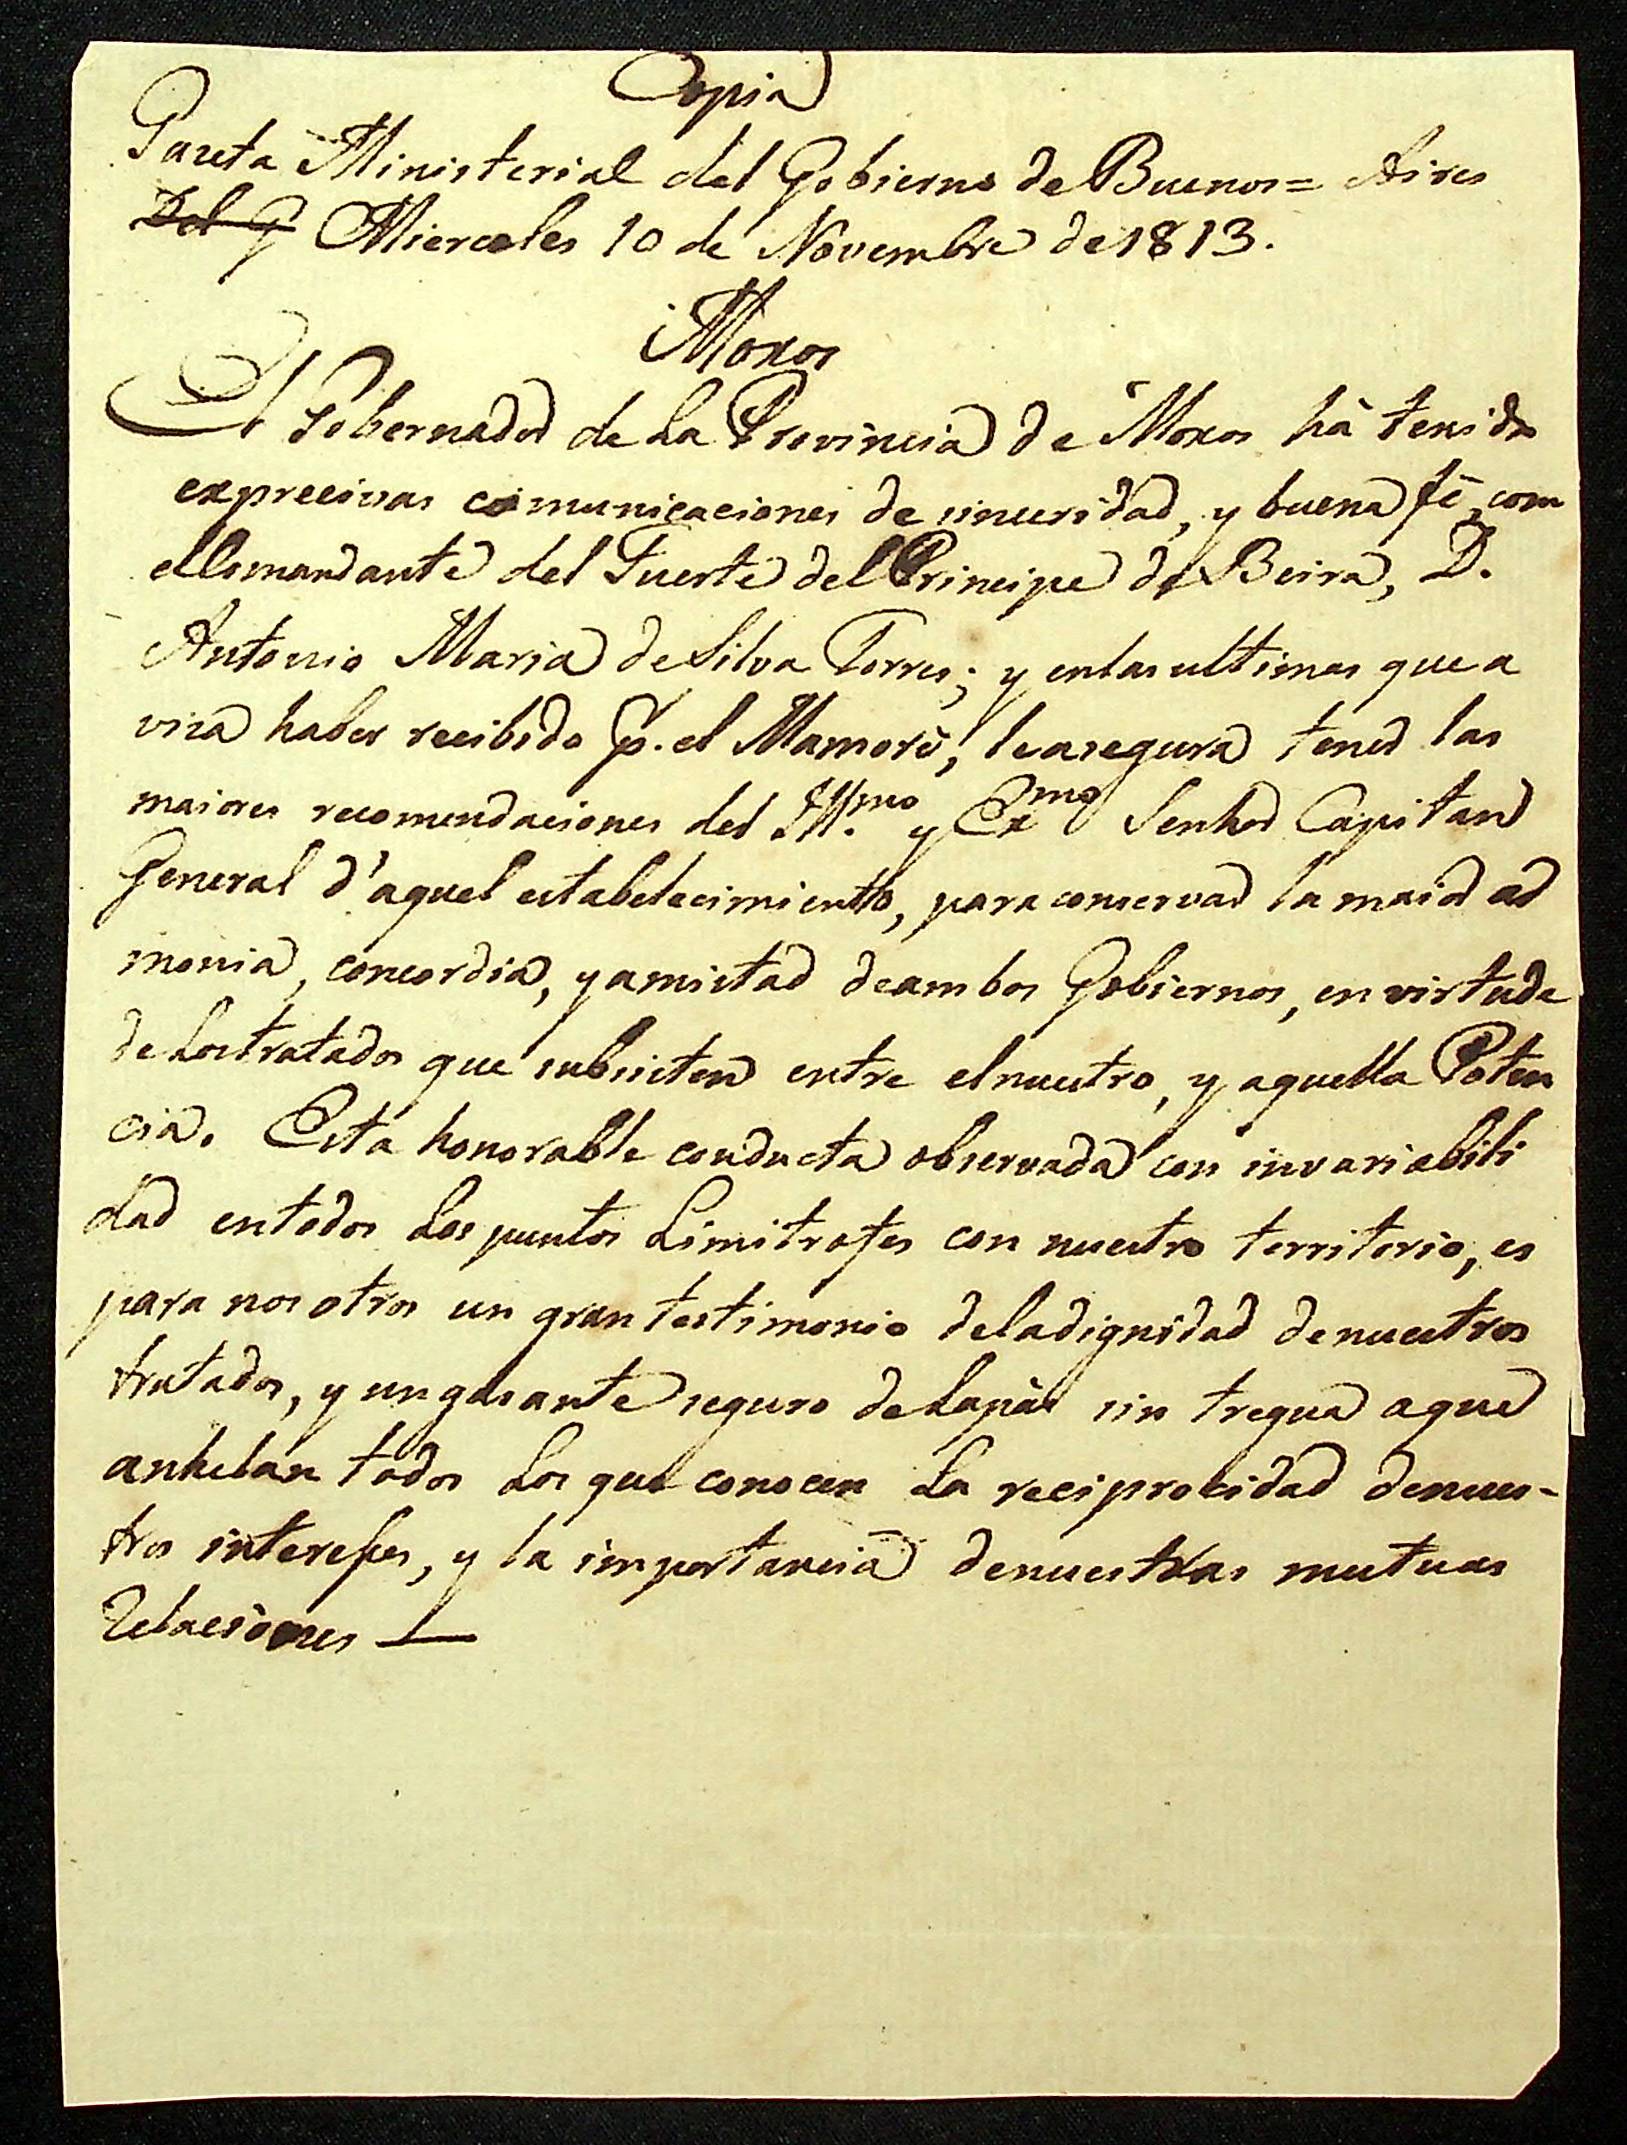 Copia
Gazeta Ministerial del Gobierno de Buenos= Aires
Del G Miercoles 10 de Novembre de 1813.
Moxos
El Gobernador de La Provincia de Moxos há tenido
exprecivas comunicaciones de sinceridad, y buena fé, com
el Comandante del Fuerte del Principe da Beira, D.
Antonio Maria de Silva Torres; y en las ultimas que a
visa haber recibido p. el Mamoré, le asegura tener las
maiores recomendaciones del Ill.mo y Exmo Senhor Capitan
General d'aquel establecimiento, para conservar la maior ar
monia, concordia, y amistad de ambos Gobiernos, en virtude
de Los tratados que subsisten entre el nuestro, y aquella Poten
cia. Esta honorable conducta observada con invariabili
dad en todos Los puntos Limitrofes con nuestro territorio, es
para nosotros un gran testimonio de la dignidad de nuestros
tratados, y un garante seguro de La páz sin tregua a que
anhelan todos Los que conocen La reciprocidad de nues-
tros interesses, y la importancia de nuestras mutuas
Relaciones —